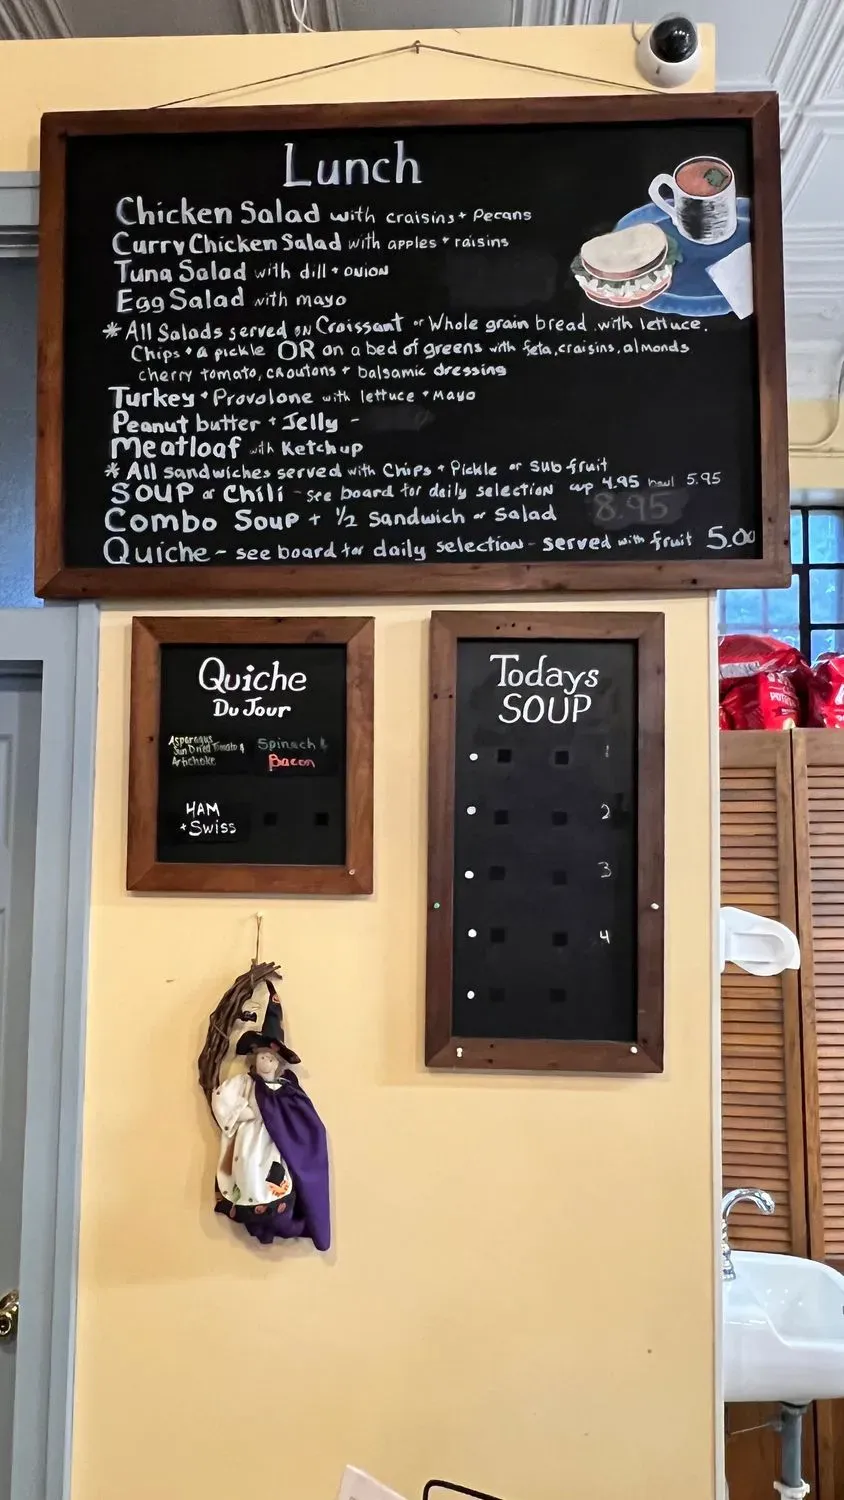 Lunch
Chicken Salad with craisins + Pecans
Curry Chicken Salad with apples + raisins
Tuna Salad with dill + onion
Egg Salad with mayo
* All Salads served on Croissant or Whole grain bread with lettuce.
Chips + a pickle OR on a bed of greens with feta, craisins, almonds
cherry tomato, croutons + balsamic dressing
Turkey + Provolone with lettuce + Mayo
Peanut butter + Jelly -
Meatloaf with Ketchup
* All sandwiches served with Chips + Pickle or sub fruit
SOUP or Chili - see board for daily selection cup 4.95 bowl 5.95
Combo Soup + 1/2 Sandwich or Salad 8.95
Quiche - see board for daily selection - served with fruit 5.00
Quiche
Du Jour
Asparagus
Sun Dried Tomato &
Artichoke
Spinach &
Bacon
HAM
+ Swiss
Todays
SOUP
1
2
3
4